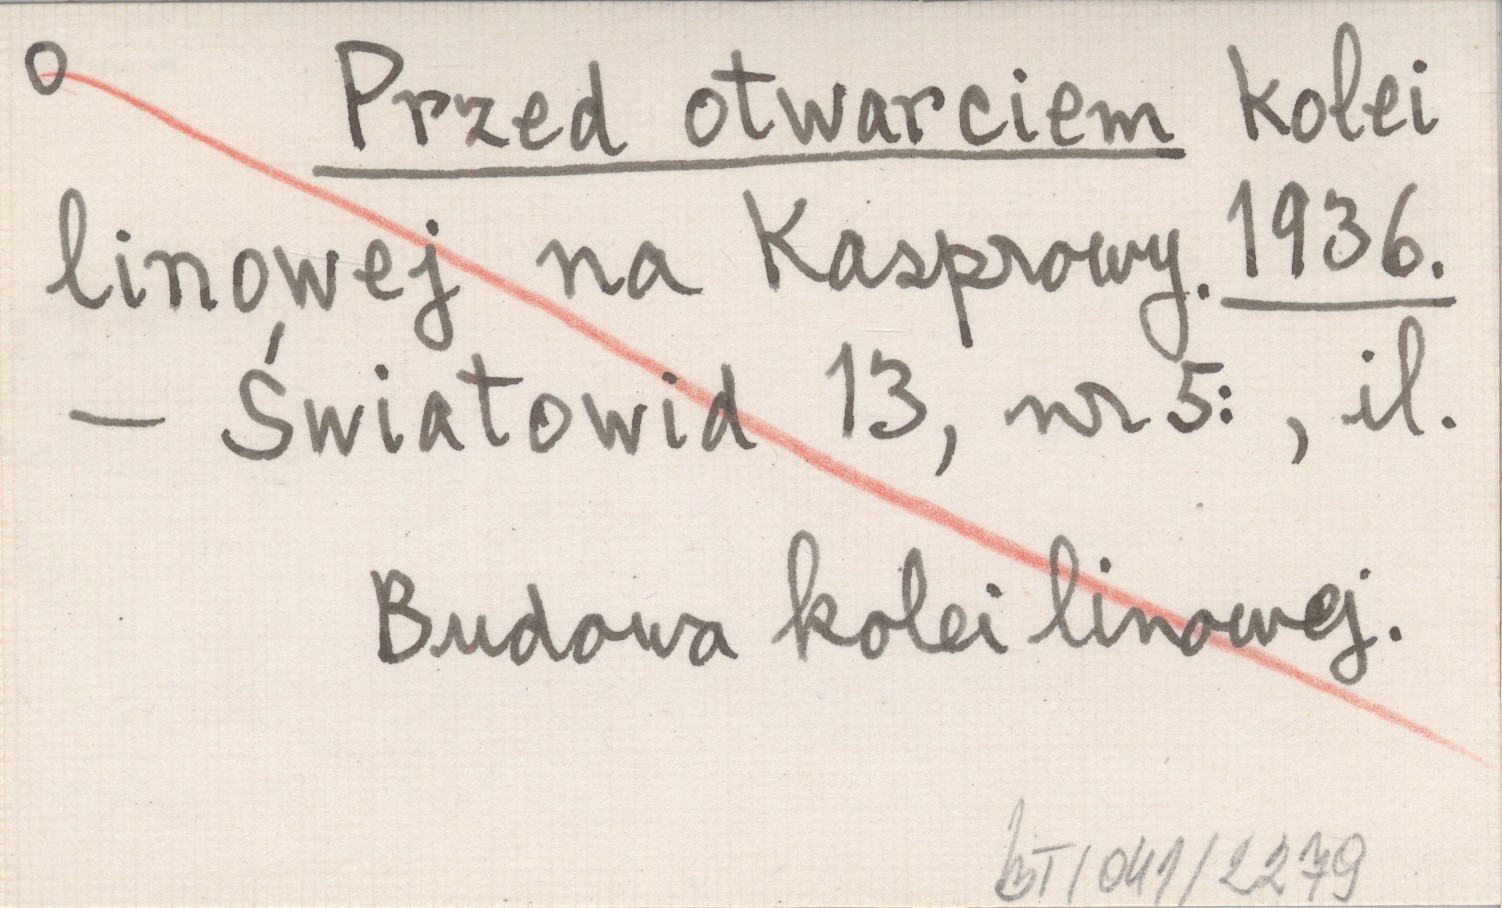 O Przed otwarciem kolei
linowej na Kasprowy. 1936.
— Światowid 13, nr 5: , il.
Budowa kolei linowej.
/041/2279